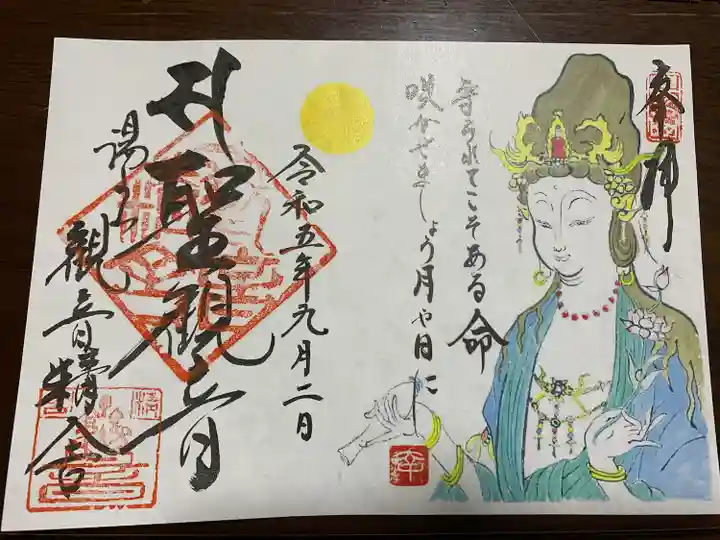 奉拝
守られてこそある命
咲かせましょう月や日に
令和五年九月二日
聖観音
観音精舎